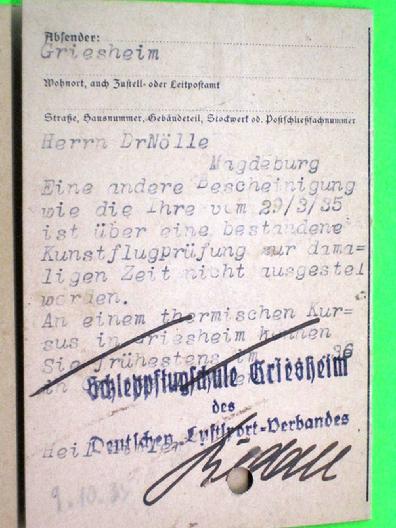 Absender:
Griesheim
Wohnort, auch Zustell- oder Leitpostamt
Straße, Hausnummer, Gebäudeteil, Stockwerk od. Postschließfachnummer
Herrn DrNölle
Magdeburg
Eine andere Bescheinigung
wie die Ihre vom 29/3/35
ist über eine bestandene
Kunstflugprüfung zur dama=
ligen Zeit nicht ausgestel
worden.
An einem thermischen Kur=
sus in Griesheim können
Sie frühestens im 36
in
Schleppflugschule Griesheim
des
Deutschen Luftsport-Verbandes
Heil
9.10.35